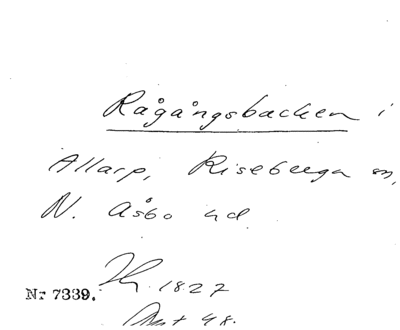 Rågångsbacken i
Allarp, Riseberga sn,
N. Åsbo hd
1827
Nr 7339.
48.